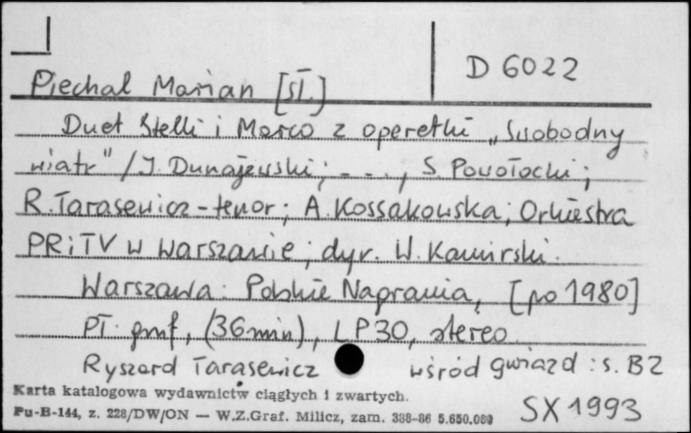 D 6022
Piechal Marian [sł.]
Duet Stelli i Marco z operetki „Swobodny
wiatr" / I. Dunajewski; - - -, S. Powołocki;
R. Tarasewicz - tenor; A. Kossakowska; Orkiestra
PRiTV w Warszawie; dyr. W. Kamirski.
Warszawa: Polskie Nagrania, [po 1980]
Pł. gmf, (36 min), LP30, stereo
Ryszard Tarasewicz wśród gwiazd : s. B2
Karta katalogowa wydawnictw ciągłych i zwartych.
Pu-B-144, z. 228/DW/ON — W.Z.Graf. Milicz, zam. 388-86 5.650.000
SX 1993